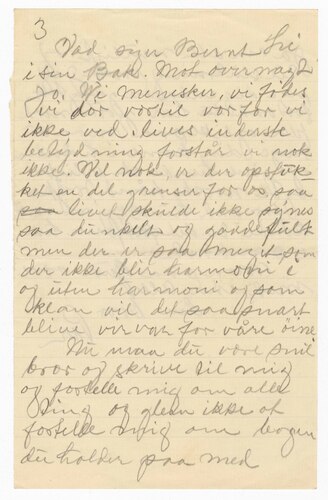 3
Vad siger Bernt Lie
i sin Bok. Mot overmagt
Jo. Vi menesker, vi fødes
vi dør vortil vor for vi
ikke ved. lives inderste
betydning forstår vi nok
ikke. Vel nok er der opstuk
ket en del grenser for os saa
livet skulde ikke synes
saa dunkelt og gaadefullt
men der er saa meget som
der ikke blir harmoni i
og uten harmoni og som
klan vil det saa snart
blive for våre øine
Nu maa du være snil
bror og skrive til mig
og fortelle mig om alle
ting og glem ikke at
fortelle mig om bogen
du holder paa med